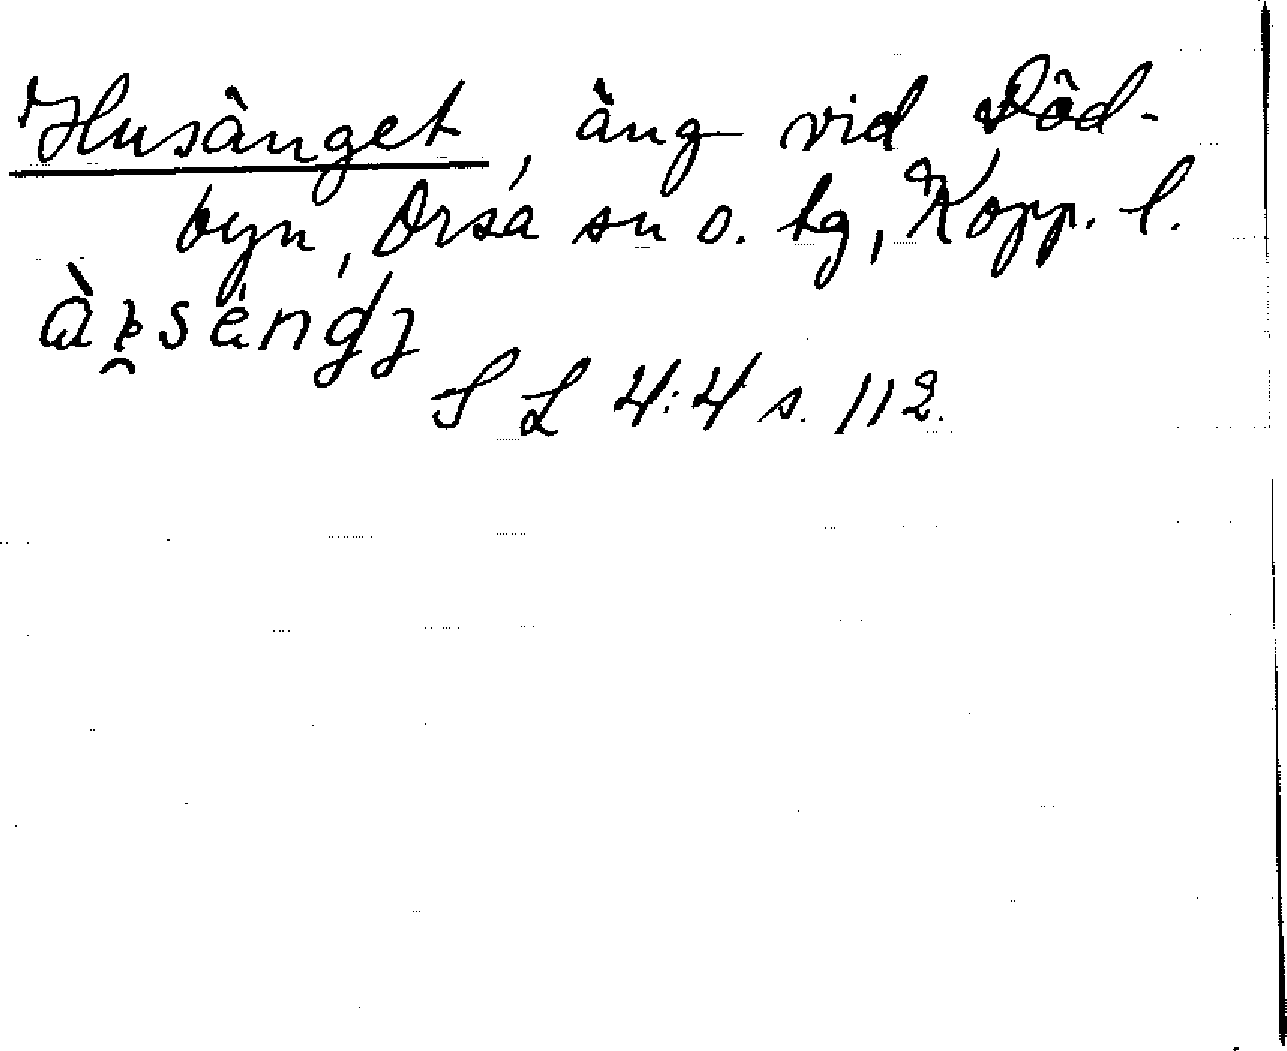 Husänget, äng vid Död-
byn, Orsa sn o. tg, Kopp. l.
S L 4:4 s. 112.